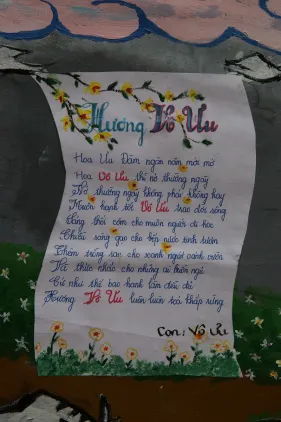 Hương Vô Ưu
Hoa Ưu Đàm ngàn năm mới nở
Hoa Vô Ưu thì nở thường ngày
thường ngày không phải không hay
Muôn hạnh tốt Vô Ưu trao đời sống
thổi cơm cho muôn người đi học
sáng gạo cho bếp nước tinh tươm
trồng rau cho xanh người oanh vườn
thức nhắc cho những ai biếng ngủ
Cứ như thế bao hạnh lành đầy đủ
Hương Vô Ưu luôn luôn toả khắp rừng
Con: Vô Ưu